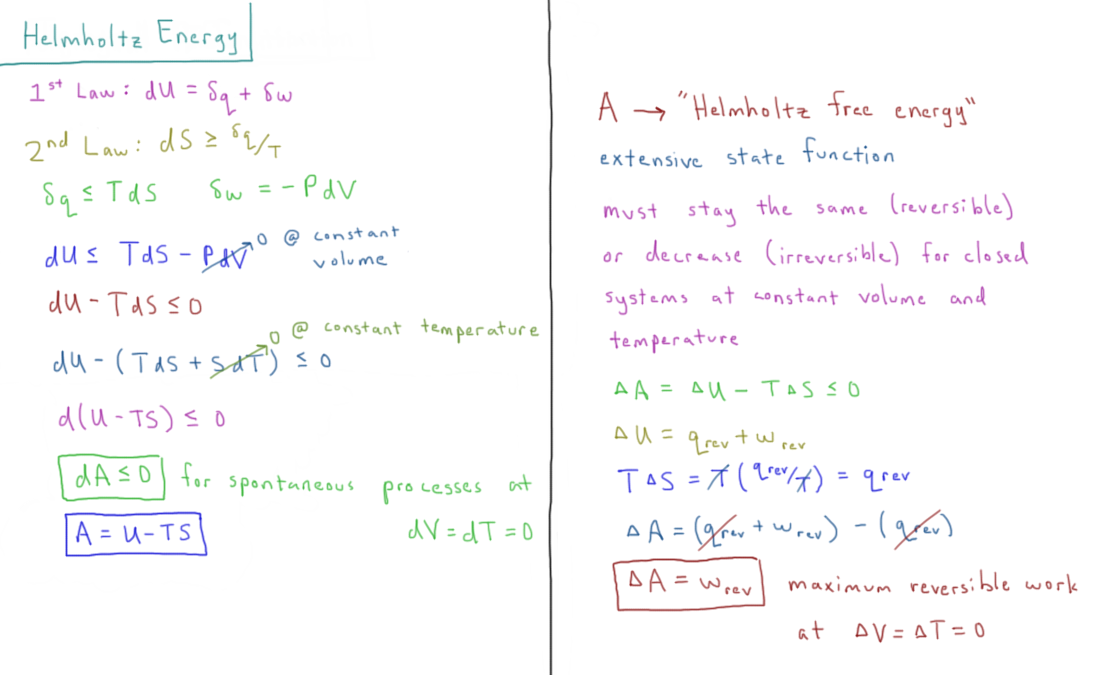 Helmholtz Energy
1st Law: dU = δq + δw
2nd Law: dS ≥ δq/T
δq ≤ TdS δw = -PdV
dU ≤ TdS - PdV 0 @ constant volume
dU - TdS ≤ 0
dU - (TdS + SdT) ≤ 0 0 @ constant temperature
d(U - TS) ≤ 0
dA ≤ 0 for spontaneous processes at
A = U - TS dV = dT = 0
A → "Helmholtz free energy"
extensive state function
must stay the same (reversible)
or decrease (irreversible) for closed
systems at constant volume and
temperature
ΔA = ΔU - TΔS ≤ 0
ΔU = qrev + wrev
TΔS = T(qrev/T) = qrev
ΔA = (qrev + wrev) - (qrev)
ΔA = wrev maximum reversible work
at ΔV = ΔT = 0